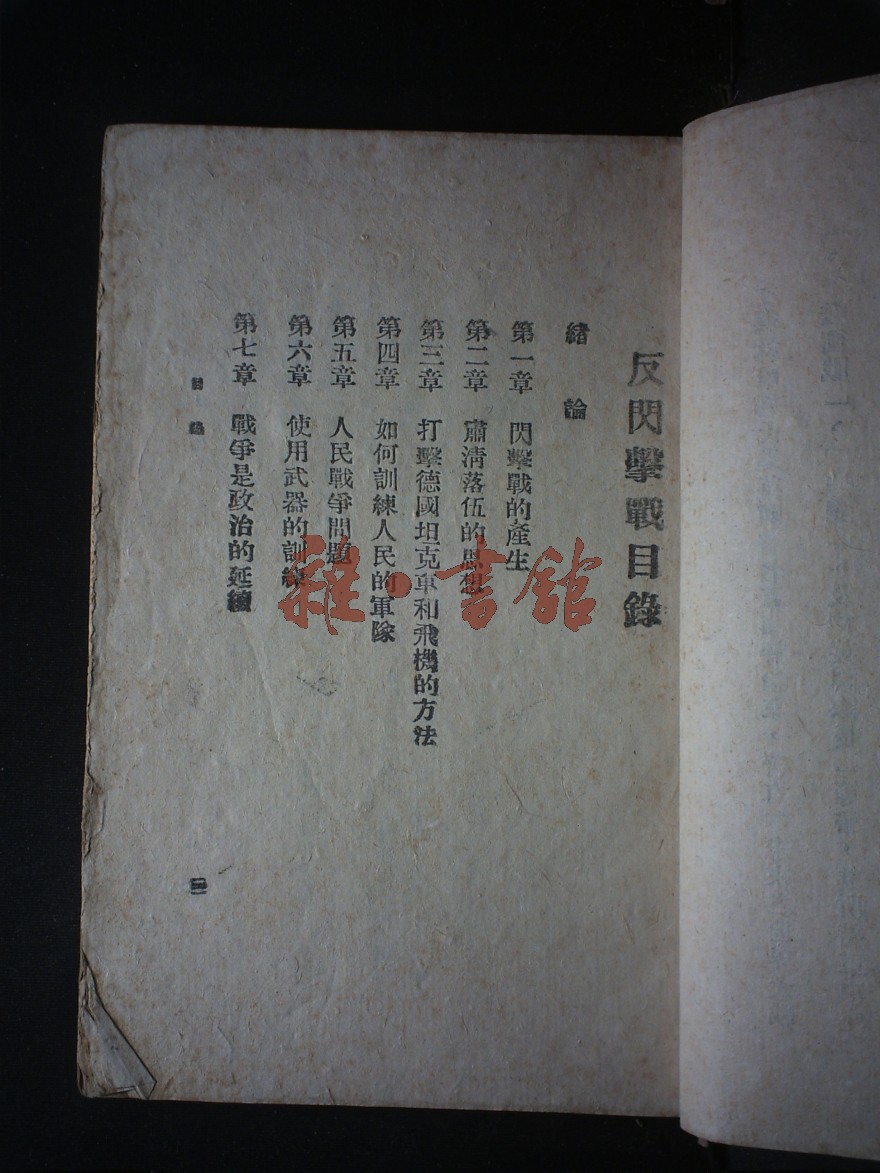 反閃擊戰目錄
緒論
第一章 閃擊戰的產生
第二章 肅清落伍的思想
第三章 打擊德國坦克車和飛機的方法
第四章 如何訓練人民的軍隊
第五章 人民戰爭問題
第六章 使用武器的訓練
第七章 戰爭是政治的延續
目錄
雜·書館